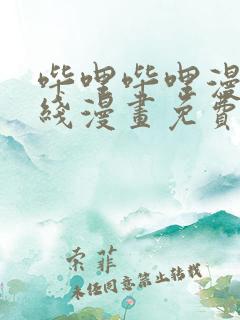 哔哩哔哩漫
线漫画免費
索菲
未经同意禁止转载